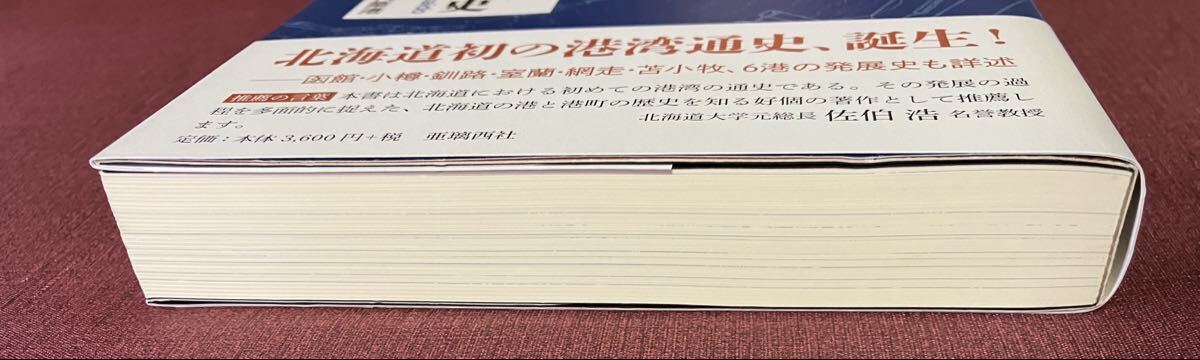 史
北海道初の港湾通史、誕生!
──函館・小樽・釧路・室蘭・網走・苫小牧、6港の発展史も詳述
推薦の言葉 本書は北海道における初めての港湾の通史である。その発展の過
程を多面的に捉えた、北海道の港と港町の歴史を知る好個の著作として推薦し
ます。
北海道大学元総長 佐伯 浩 名誉教授
定価:本体3,600円+税 亜璃西社